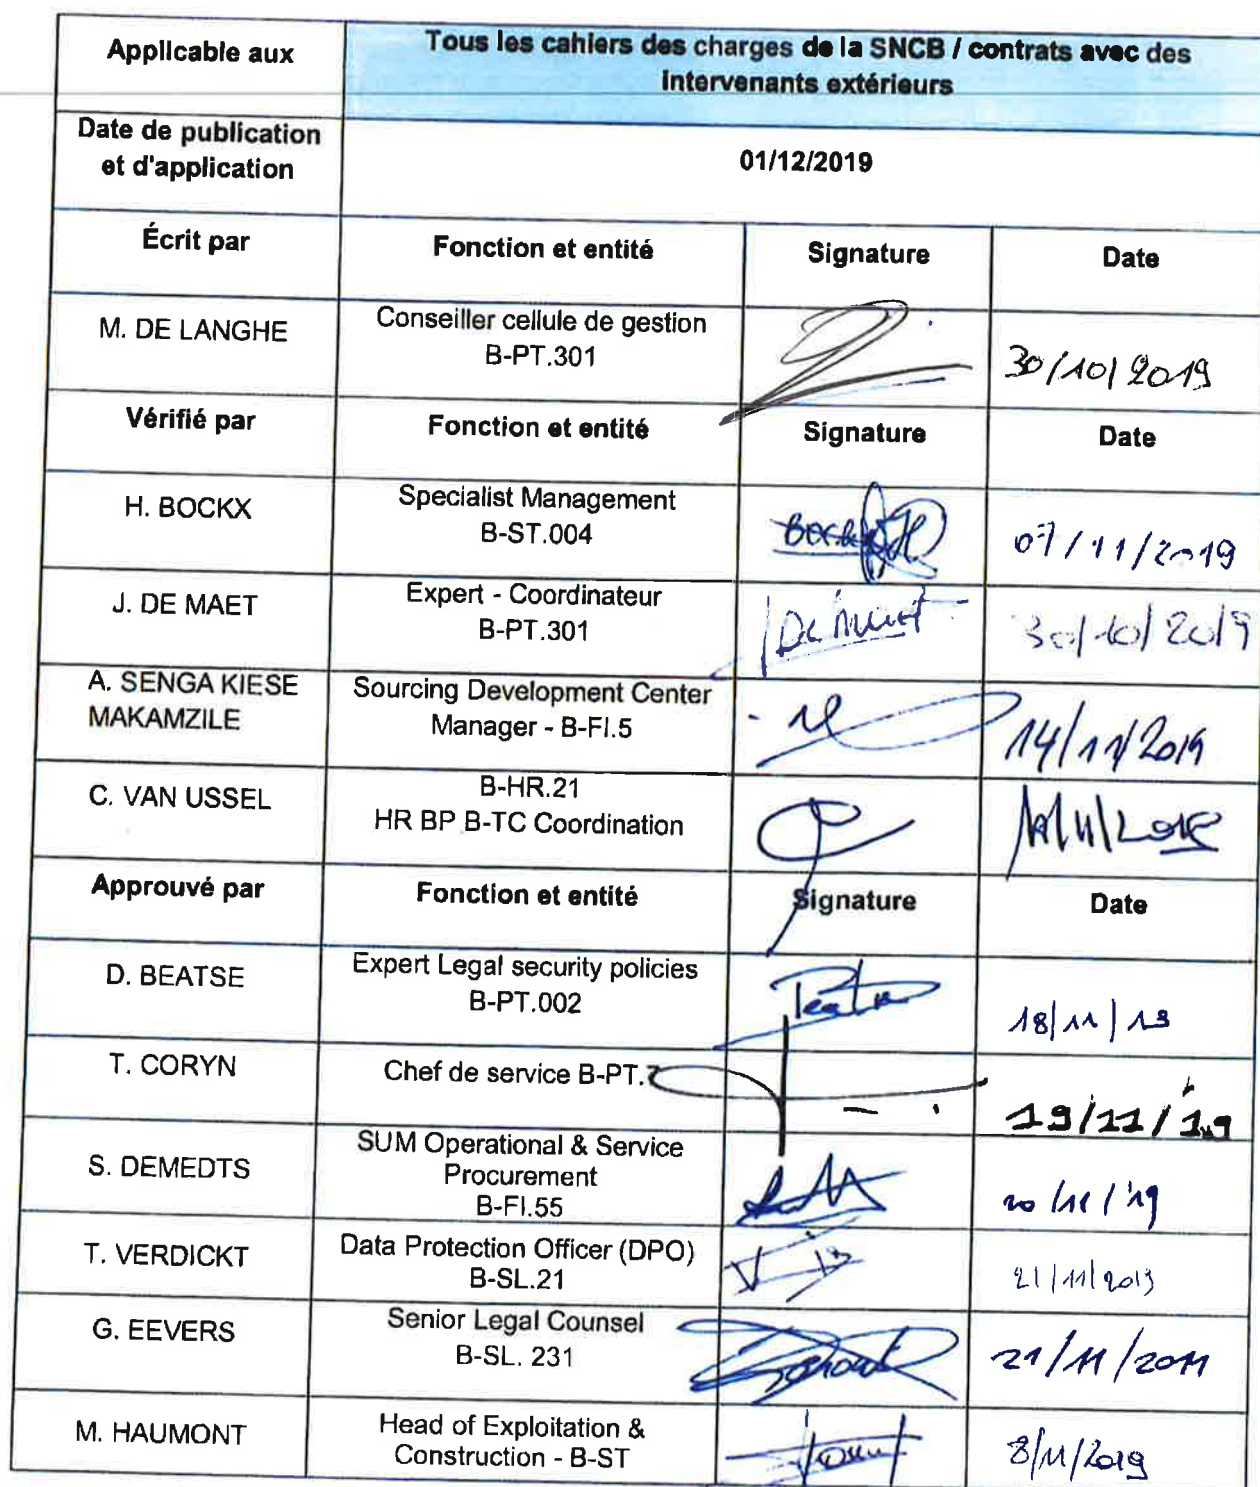 Applicable aux
Tous les cahiers des charges de la SNCB / contrats avec des
intervenants extérieurs
Date de publication
et d'application
01/12/2019
Écrit par
Fonction et entité
Signature
Date
M. DE LANGHE
Conseiller cellule de gestion
B-PT.301
30/10/2019
Vérifié par
Fonction et entité
Signature
Date
H. BOCKX
Specialist Management
B-ST.004
07/11/2019
J. DE MAET
Expert - Coordinateur
B-PT.301
De Maet
30/10/2019
A. SENGA KIESE
MAKAMZILE
Sourcing Development Center
Manager - B-FI.5
14/11/2019
C. VAN USSEL
B-HR.21
HR BP B-TC Coordination
Approuvé par
Fonction et entité
Signature
Date
D. BEATSE
Expert Legal security policies
B-PT.002
18/11/19
T. CORYN
Chef de service B-PT.
19/11/19
S. DEMEDTS
SUM Operational & Service
Procurement
B-FI.55
20/11/'19
T. VERDICKT
Data Protection Officer (DPO)
B-SL.21
21/11/2019
G. EEVERS
Senior Legal Counsel
B-SL. 231
21/11/2019
M. HAUMONT
Head of Exploitation &
Construction - B-ST
8/11/2019